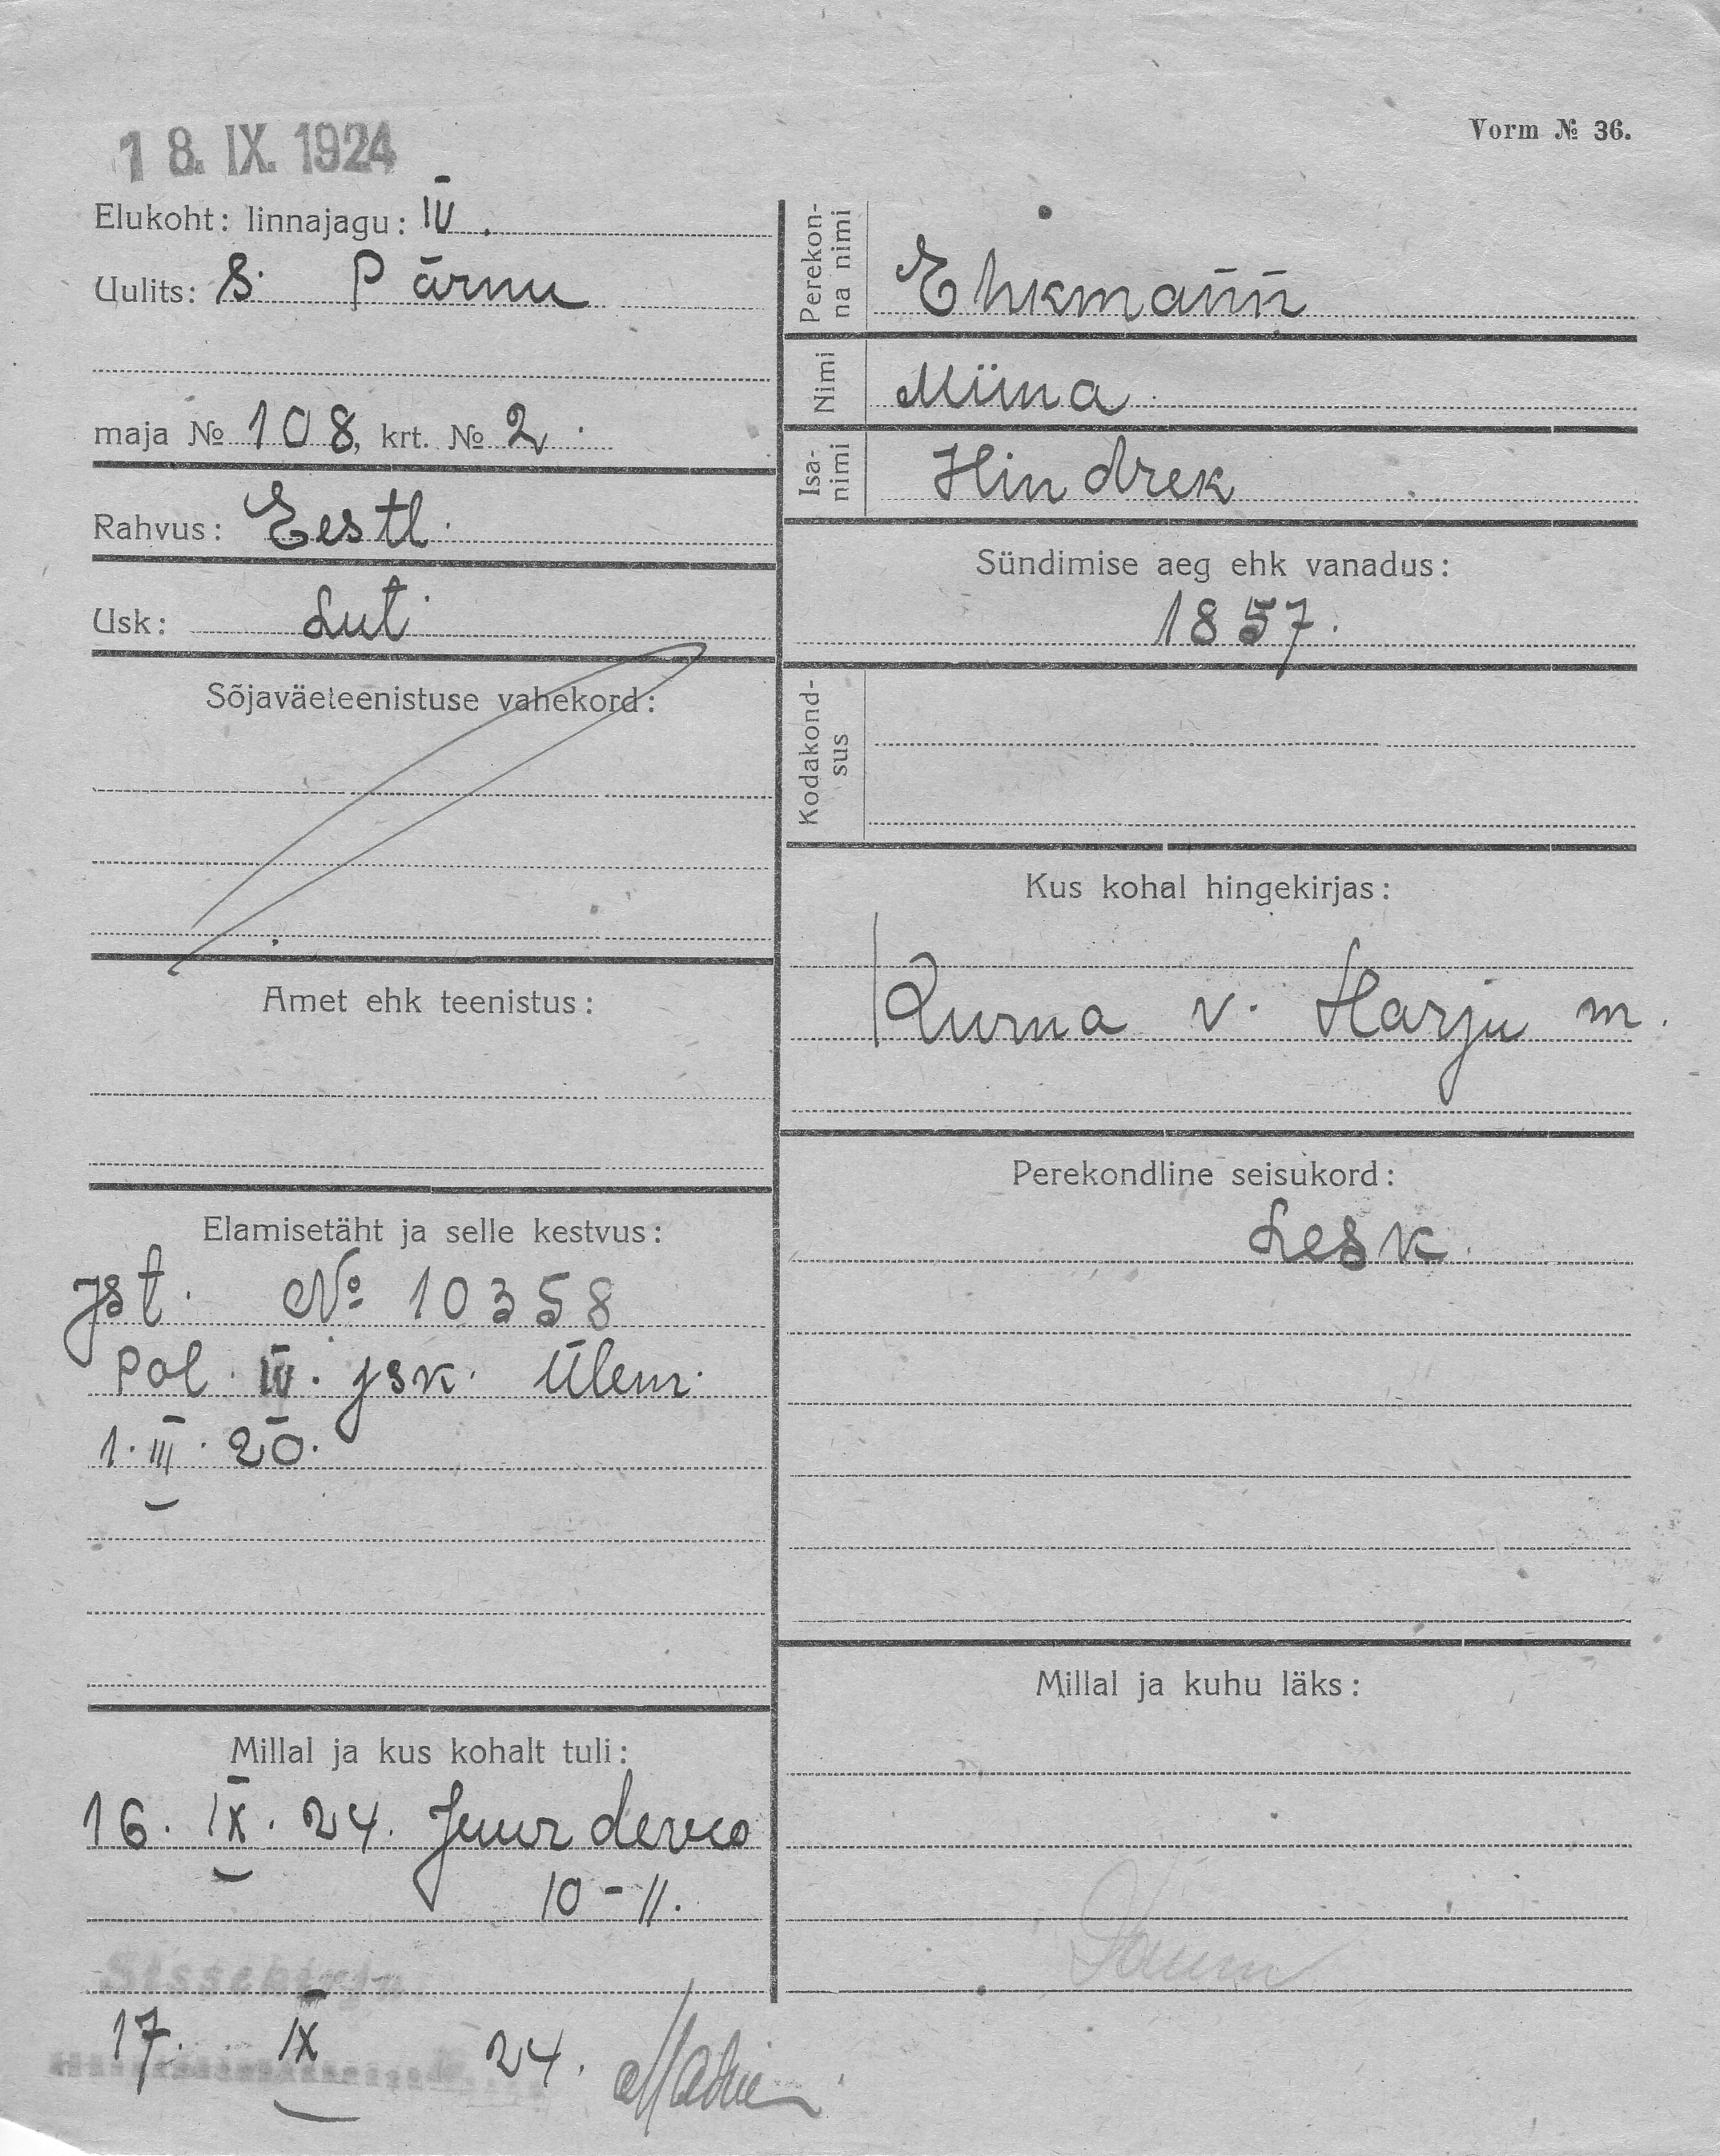 18. IX. 1924
Vorm № 36.
Elukoht: linnajagu: IV.
Uulits: S. Pärnu
maja № 108, krt. № 2.
Rahvus: Eestl.
Usk: Lut.
Sõjaväeteenistuse vahekord:
Amet ehk teenistus:
Elamisetäht ja selle kestvus:
Jst. № 10358
Pol. IV. jsk. Ülem.
1. III. 20.
Millal ja kus kohalt tuli:
16. IX. 24.
10-11.
Sissekirju
17. IX 24.
Perekon-
na nimi
Ehkmann
Nimi
Miina
Isa-
nimi
Hindrek
Sündimise aeg ehk vanadus:
1857.
Kodakond-
sus
Kus kohal hingekirjas:
Kurna v. Harju m.
Perekondline seisukord:
Lesk.
Millal ja kuhu läks: